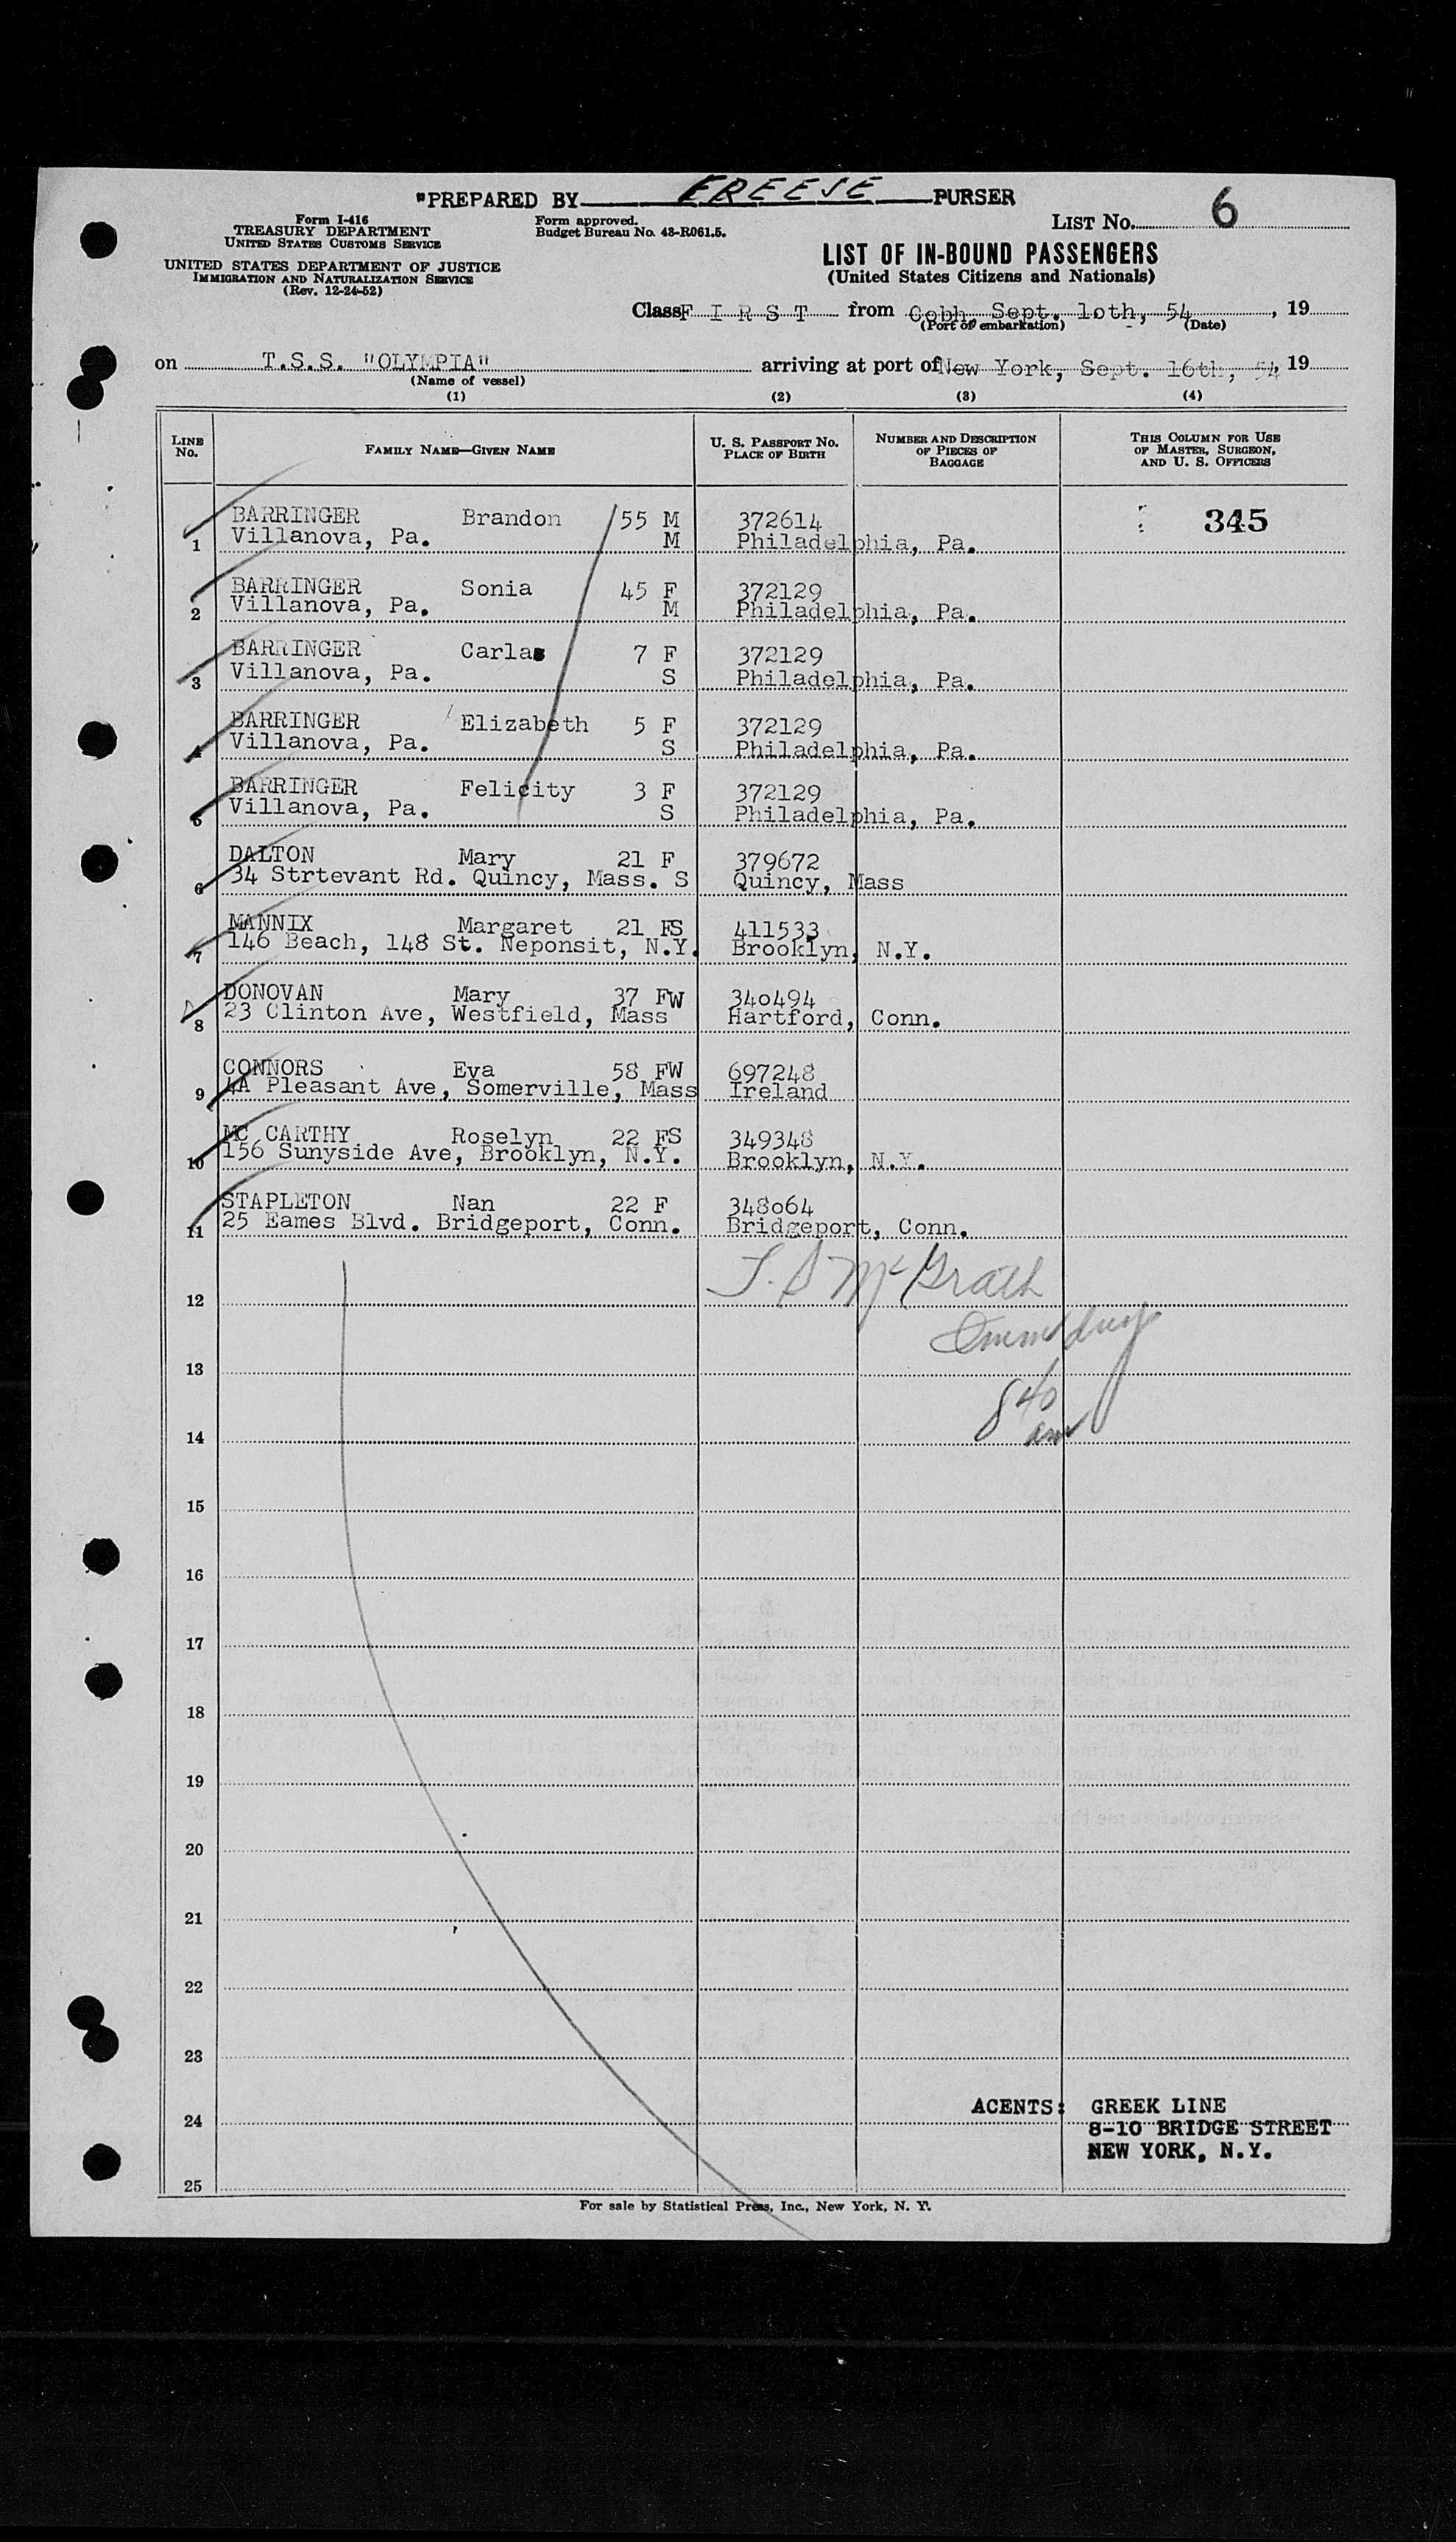 "PREPARED BY FREESE PURSER
Form I-416
TREASURY DEPARTMENT
UNITED STATES CUSTOMS SERVICE
UNITED STATES DEPARTMENT OF JUSTICE
IMMIGRATION AND NATURALIZATION SERVICE
(Rev. 12-24-52)
Form approved.
Budget Bureau No. 43-R061.5.
LIST NO. 6
LIST OF IN-BOUND PASSENGERS
(United States Citizens and Nationals)
Class F I R S T from Cobh, Sept. 1oth, 54, 19
(Port of embarkation) (Date)
on T.S.S. "OLYMPIA" arriving at port of New York, Sept. 16th, 54, 19
(Name of vessel)
(1) (2) (3) (4)
LINE No. FAMILY NAME—GIVEN NAME U. S. PASSPORT NO. PLACE OF BIRTH NUMBER AND DESCRIPTION OF PIECES OF BAGGAGE THIS COLUMN FOR USE OF MASTER, SURGEON, AND U. S. OFFICERS
BARRINGER Brandon 55 M 372614 345
1 Villanova, Pa. M Philadelphia, Pa.
BARRINGER Sonia 45 F 372129
2 Villanova, Pa. M Philadelphia, Pa.
BARRINGER Carla 7 F 372129
3 Villanova, Pa. S Philadelphia, Pa.
BARRINGER Elizabeth 5 F 372129
4 Villanova, Pa. S Philadelphia, Pa.
BARRINGER Felicity 3 F 372129
5 Villanova, Pa. S Philadelphia, Pa.
DALTON Mary 21 F 379672
6 34 Strtevant Rd. Quincy, Mass. S Quincy, Mass
MANNIX Margaret 21 FS 411533
7 146 Beach, 148 St. Neponsit, N.Y. Brooklyn, N.Y.
DONOVAN Mary 37 FW 34o494
8 23 Clinton Ave, Westfield, Mass Hartford, Conn.
CONNORS Eva 58 FW 697248
9 4A Pleasant Ave, Somerville, Mass Ireland
MC CARTHY Roselyn 22 FS 349348
10 156 Sunyside Ave, Brooklyn, N.Y. Brooklyn, N.Y.
STAPLETON Nan 22 F 348o64
11 25 Eames Blvd. Bridgeport, Conn. Bridgeport, Conn.
McGrath
12
13
840
am
14
15
16
17
18
19
20
21
22
23
ACENTS: GREEK LINE
24
8-10 BRIDGE STREET
NEW YORK, N.Y.
25
For sale by Statistical Press, Inc., New York, N. Y.